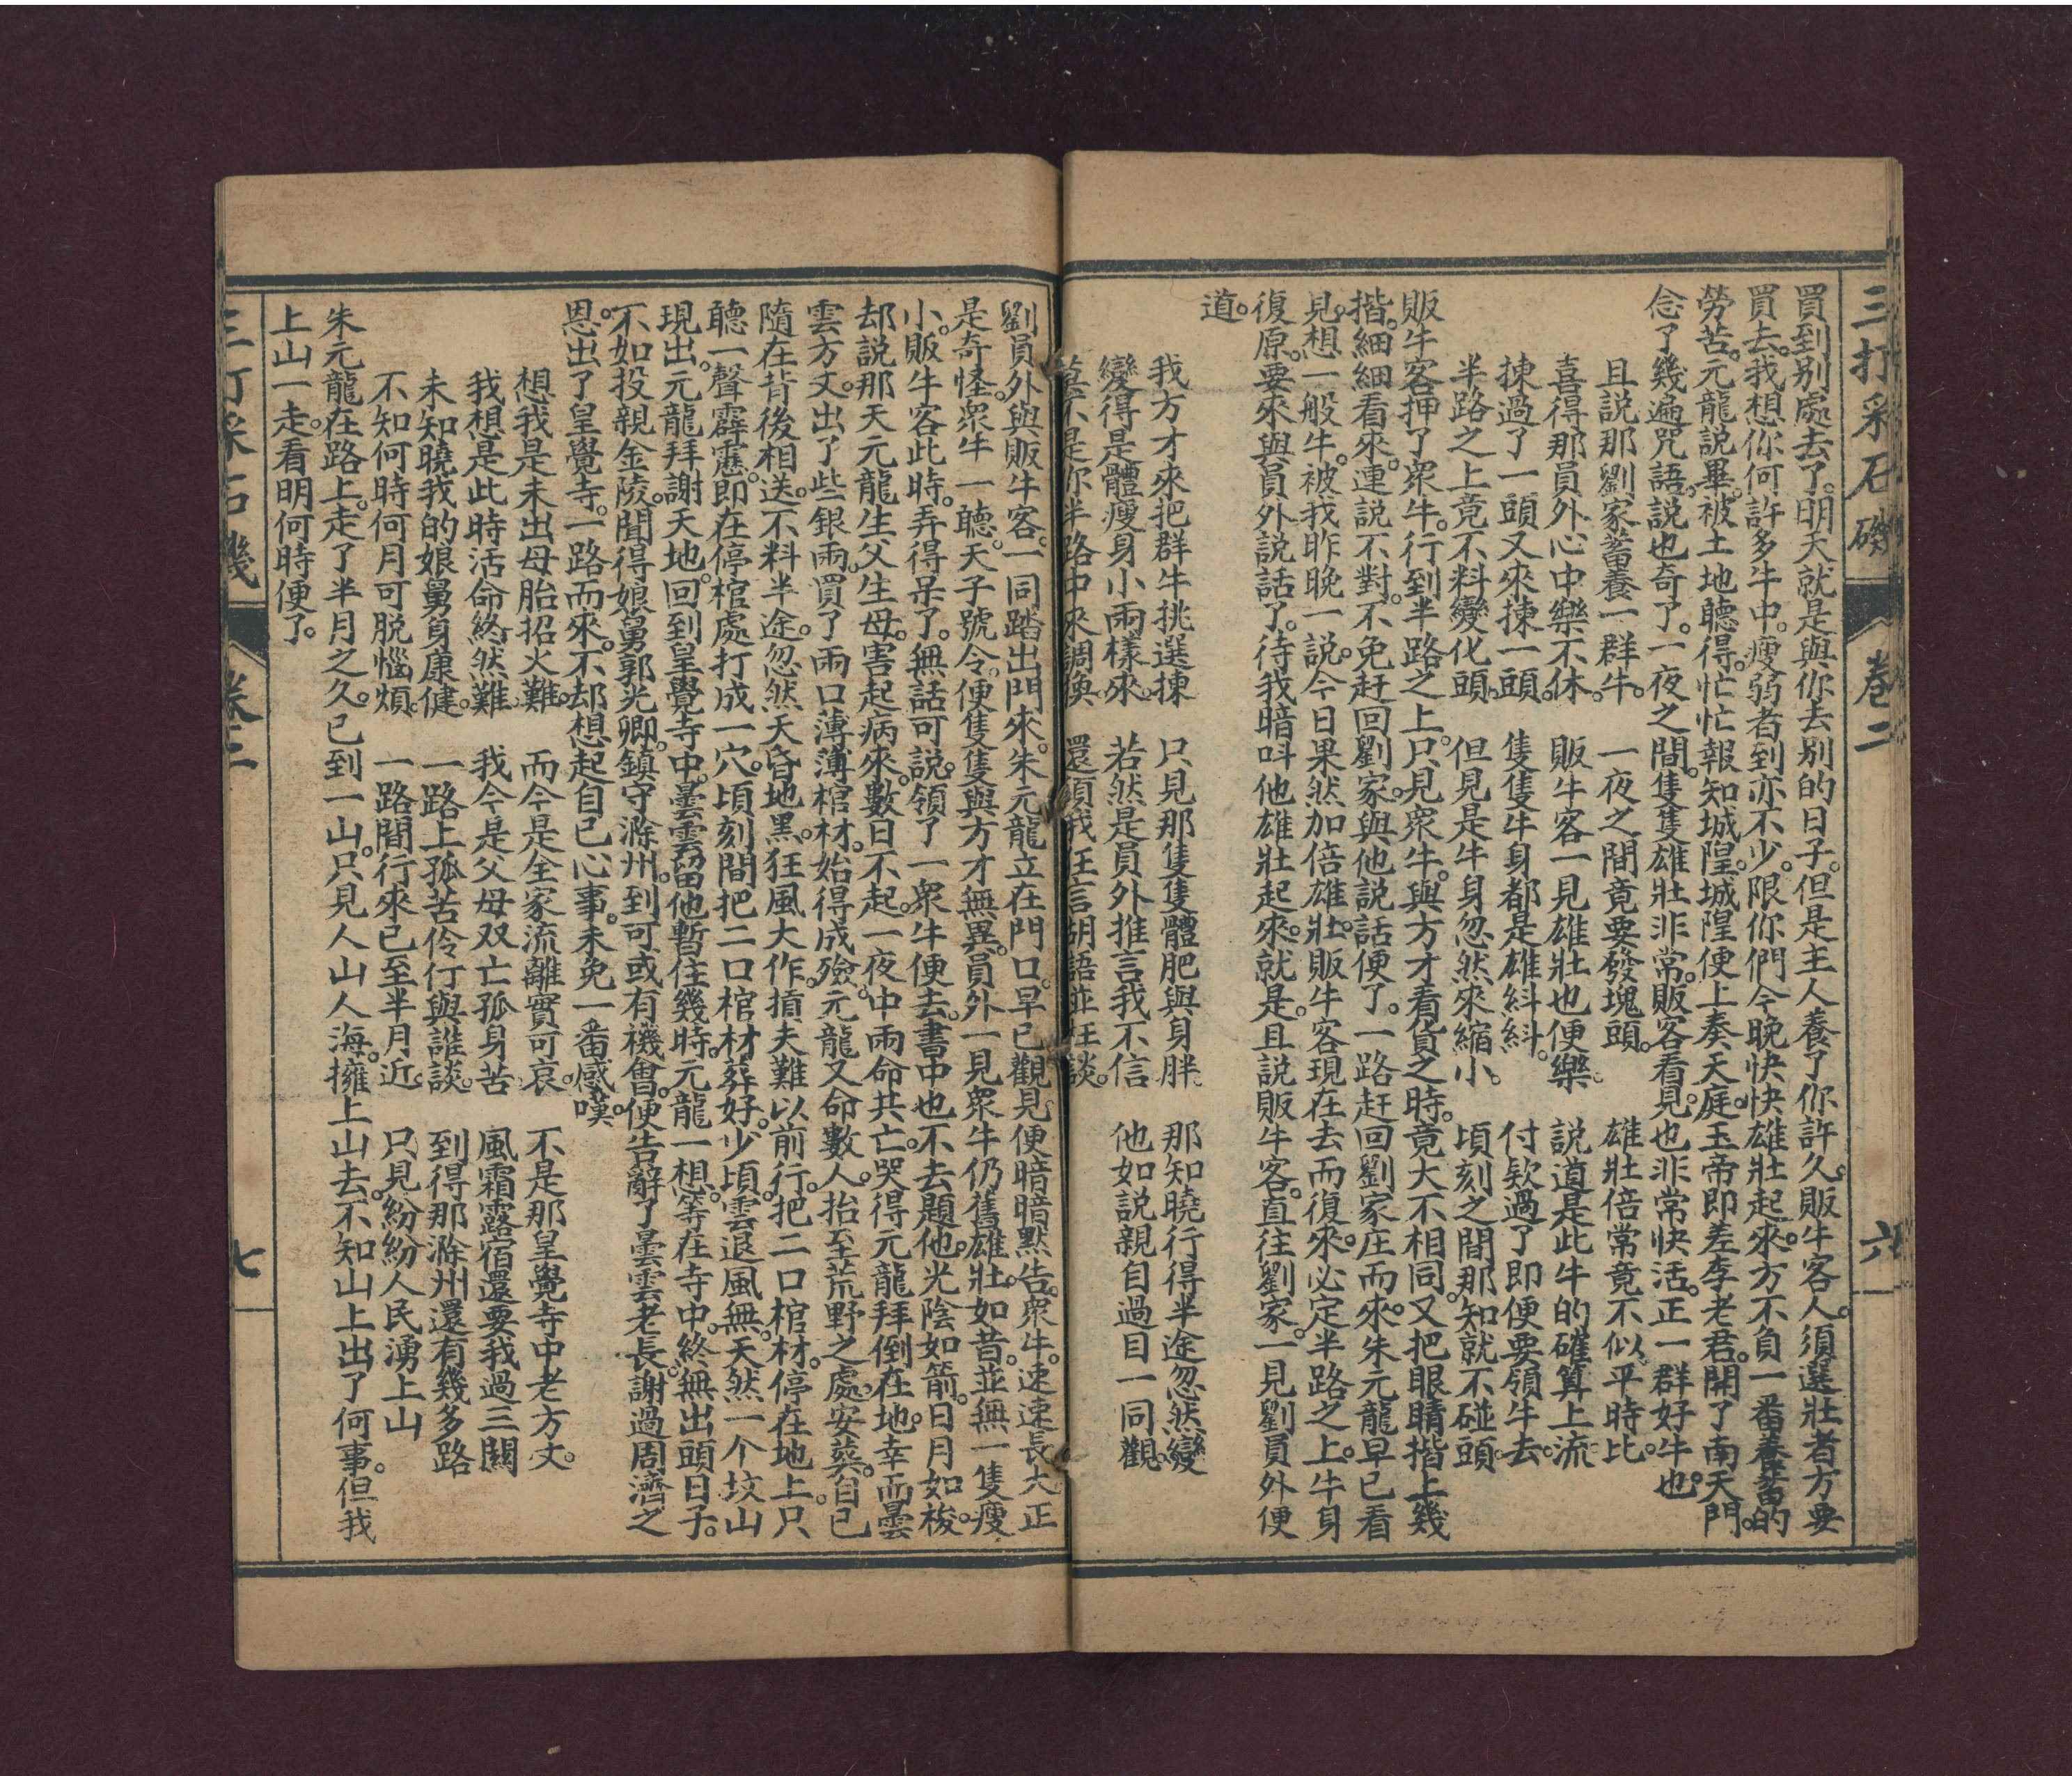 三打采石磯 卷二 六
買到别處去了。明天就是與你去别的日子。但是主人養了你許久。販牛客人。須選壯者方要
買去。我想你何許多牛中。瘦弱者到亦不少。限你們今晚快快雄壯起來。方不負一番養蓄的
勞苦。元龍說畢。被土地聽得。忙忙報知城隍。城隍便上奏天庭。玉帝即差李老君。開了南天門。
念了幾遍咒語。說也奇了。一夜之間。隻隻雄壯非常。販客看見。也非常快活。正一群好牛也。
且說那劉家蓄養一群牛。 一夜之間竟要發塊頭。 雄壯倍常竟不似平時比。
喜得那員外心中樂不休。 販牛客一見雄壯也便樂。 說道是此牛的確算上流
揀過了一頭又來揀一頭。 隻隻牛身都是雄糾糾。 付欵過了即便要領牛去。
半路之上竟不料變化頭。 但見是牛身忽然來縮小。 頃刻之間那知就不碰頭
販牛客押了眾牛。行到半路之上。只見眾牛。與方才看貨之時。竟大不相同。又把眼睛揩上幾
揩。細細看來。連說不對。不免赶回劉家。與他說話便了。一路赶回劉家庄而來。朱元龍早已看
見。想一般牛。被我昨晚一說。今日果然加倍雄壯。販牛客現在去而復來。必定半路之上。牛身
復原。要來與員外說話了。待我暗呌他雄壯起來。就是。且說販牛客。直往劉家。一見劉員外便
道。
我方才來把群牛挑選揀 只見那隻隻體肥與身胖。 那知曉行得半途忽然變
變得是體瘦身小兩樣來。 若然是員外推言我不信 他如說親自過目一同觀。
莫不是你半路中來調換 還須我狂言胡語並狂談。
劉員外與販牛客。一同踏出門來。朱元龍立在門口。早已觀見。便暗暗默告。眾牛。速速長大正
是奇怪。眾牛一聽。天子號令。便隻隻與方才無異。員外一見眾牛仍舊雄壯。如昔。並無一隻瘦
小。販牛客此時。弄得呆了。無話可說。領了一眾牛便去。書中也不去題他。光陰如箭。日月如梭。
却說那天元龍生父生母。害起病來。數日不起。一夜中兩命共亡。哭得元龍拜倒在地。幸而曇
雲方丈。出了些銀兩。買了兩口薄薄棺材。始得成殮。元龍又命數人。抬至荒野之處。安葬。自已
隨在背後相送。不料半途。忽然天昏地黑。狂風大作。損夫難以前行。把二口棺材。停在地上。只
聽一聲霹靂。即在停棺處打成一穴。頃刻間把二口棺材葬好。少頃。雲退風無。天然一个坟山
現出。元龍拜謝天地。回到皇覺寺中。曇雲留他暫住幾時。元龍一想。等在寺中。終無出頭日子。
不如投親金陵。聞得娘舅郭光卿。鎮守滁州。到可或有機會。便告辭了曇雲老長。謝過周濟之
恩。出了皇覺寺。一路而來。不却想起自已心事。未免一番感嘆。
想我是未出母胎招火難。 而今是全家流離實可哀。 不是那皇覺寺中老方丈。
我想是此時活命終然難 我今是父母双亡孤身苦 風霜露宿還要我過三關
未知曉我的娘舅身康健。 一路上孤苦伶仃與誰談。 到得那滁州還有幾多路
不知何時何月可脫惱煩。 一路間行來已至半月近。 只見紛紛人民湧上山
朱元龍在路上。走了半月之久。已到一山。只見人山人海。擁上山去。不知山上出了何事。但我
上山一走。看明何時便了。
三打采石磯 卷二 七